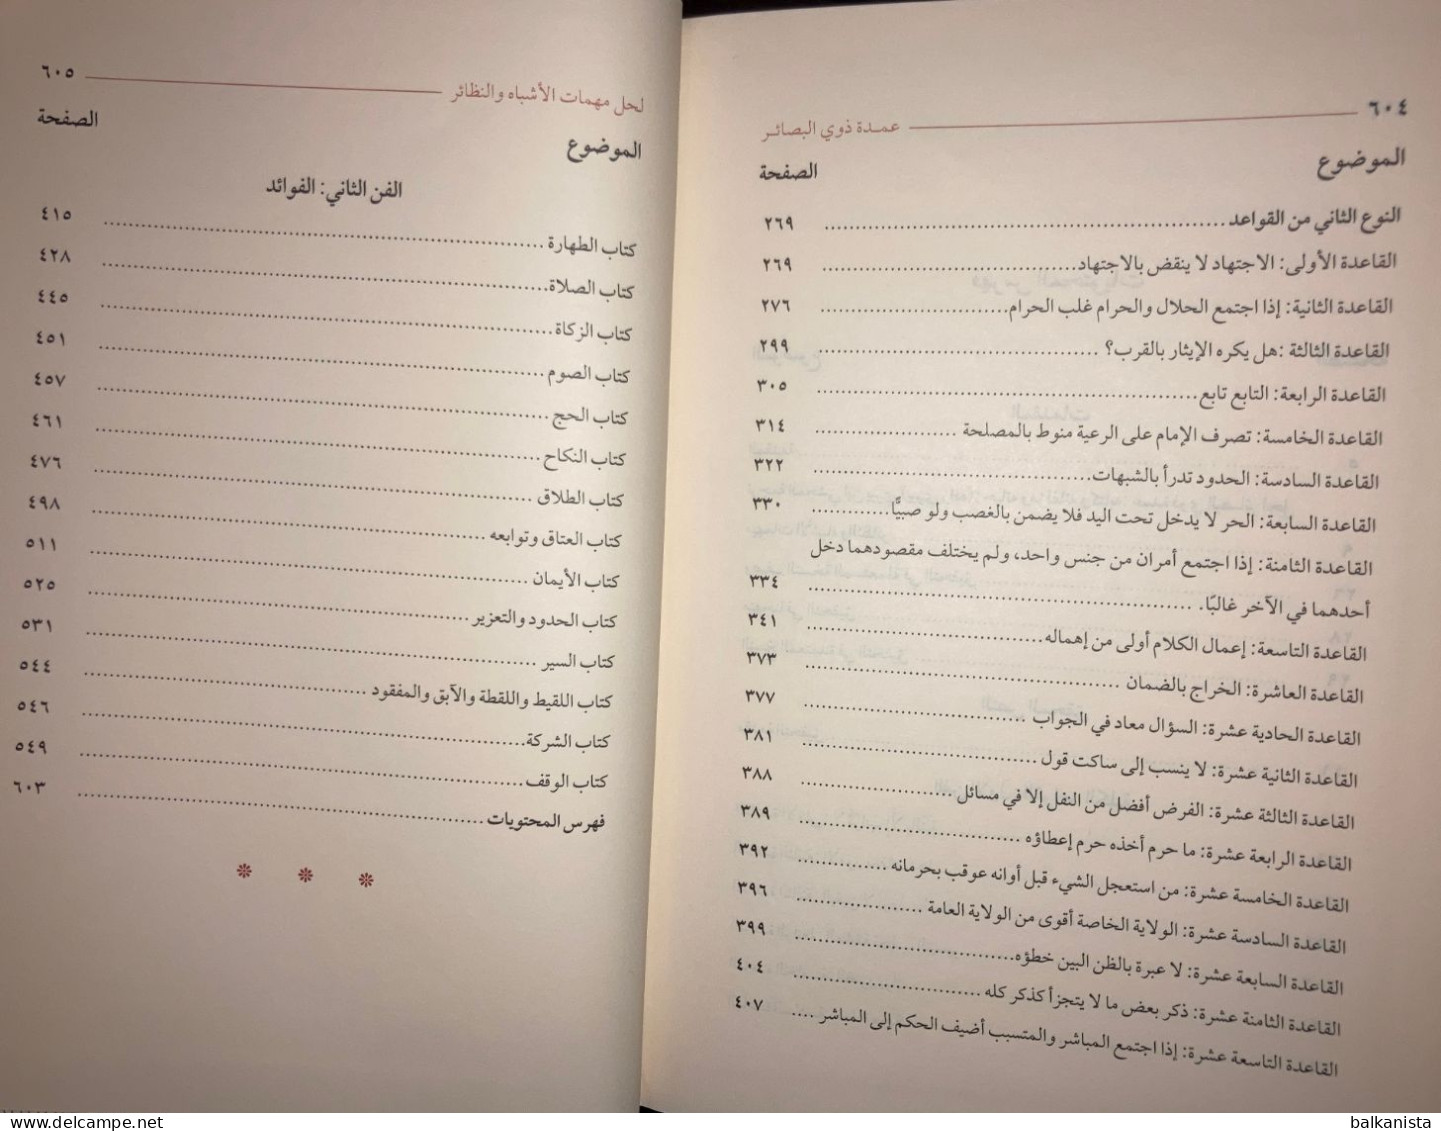 ٦٠٤ عمـدة ذوي البصائـر
الموضوع الصفحة
النوع الثاني من القواعد ٢٦٩
القاعدة الأولى: الاجتهاد لا ينقض بالاجتهاد ٢٦٩
القاعدة الثانية: إذا اجتمع الحلال والحرام غلب الحرام ٢٧٦
القاعدة الثالثة :هل يكره الإيثار بالقرب؟ ٢٩٩
القاعدة الرابعة: التابع تابع ٣٠٥
القاعدة الخامسة: تصرف الإمام على الرعية منوط بالمصلحة ٣١٤
القاعدة السادسة: الحدود تدرأ بالشبهات ٣٢٢
القاعدة السابعة: الحر لا يدخل تحت اليد فلا يضمن بالغصب ولو صبيًّا ٣٣٠
القاعدة الثامنة: إذا اجتمع أمران من جنس واحد، ولم يختلف مقصودهما دخل
أحدهما في الآخر غالبًا. ٣٣٤
القاعدة التاسعة: إعمال الكلام أولى من إهماله ٣٤١
القاعدة العاشرة: الخراج بالضمان ٣٧٣
القاعدة الحادية عشرة: السؤال معاد في الجواب ٣٧٧
القاعدة الثانية عشرة: لا ينسب إلى ساكت قول ٣٨١
القاعدة الثالثة عشرة: الفرض أفضل من النفل إلا في مسائل ٣٨٨
القاعدة الرابعة عشرة: ما حرم أخذه حرم إعطاؤه ٣٨٩
القاعدة الخامسة عشرة: من استعجل الشيء قبل أوانه عوقب بحرمانه ٣٩٢
القاعدة السادسة عشرة: الولاية الخاصة أقوى من الولاية العامة ٣٩٦
القاعدة السابعة عشرة: لا عبرة بالظن البين خطؤه ٣٩٩
القاعدة الثامنة عشرة: ذكر بعض ما لا يتجزأ كذكر كله ٤٠٤
القاعدة التاسعة عشرة: إذا اجتمع المباشر والمتسبب أضيف الحكم إلى المباشر ٤٠٧
لحل مهمات الأشباه والنظائر ٦٠٥
الموضوع الصفحة
الفن الثاني: الفوائد
كتاب الطهارة ٤١٥
كتاب الصلاة ٤٢٨
كتاب الزكاة ٤٤٥
كتاب الصوم ٤٥١
كتاب الحج ٤٥٧
كتاب النكاح ٤٦١
كتاب الطلاق ٤٧٦
كتاب العتاق وتوابعه ٤٩٨
كتاب الأيمان ٥١١
كتاب الحدود والتعزير ٥٢٥
كتاب السير ٥٣١
كتاب اللقيط واللقطة والآبق والمفقود ٥٤٤
كتاب الشركة ٥٤٦
كتاب الوقف ٥٤٩
فهرس المحتويات ٦٠٣
www.delcampe.net
balkanista